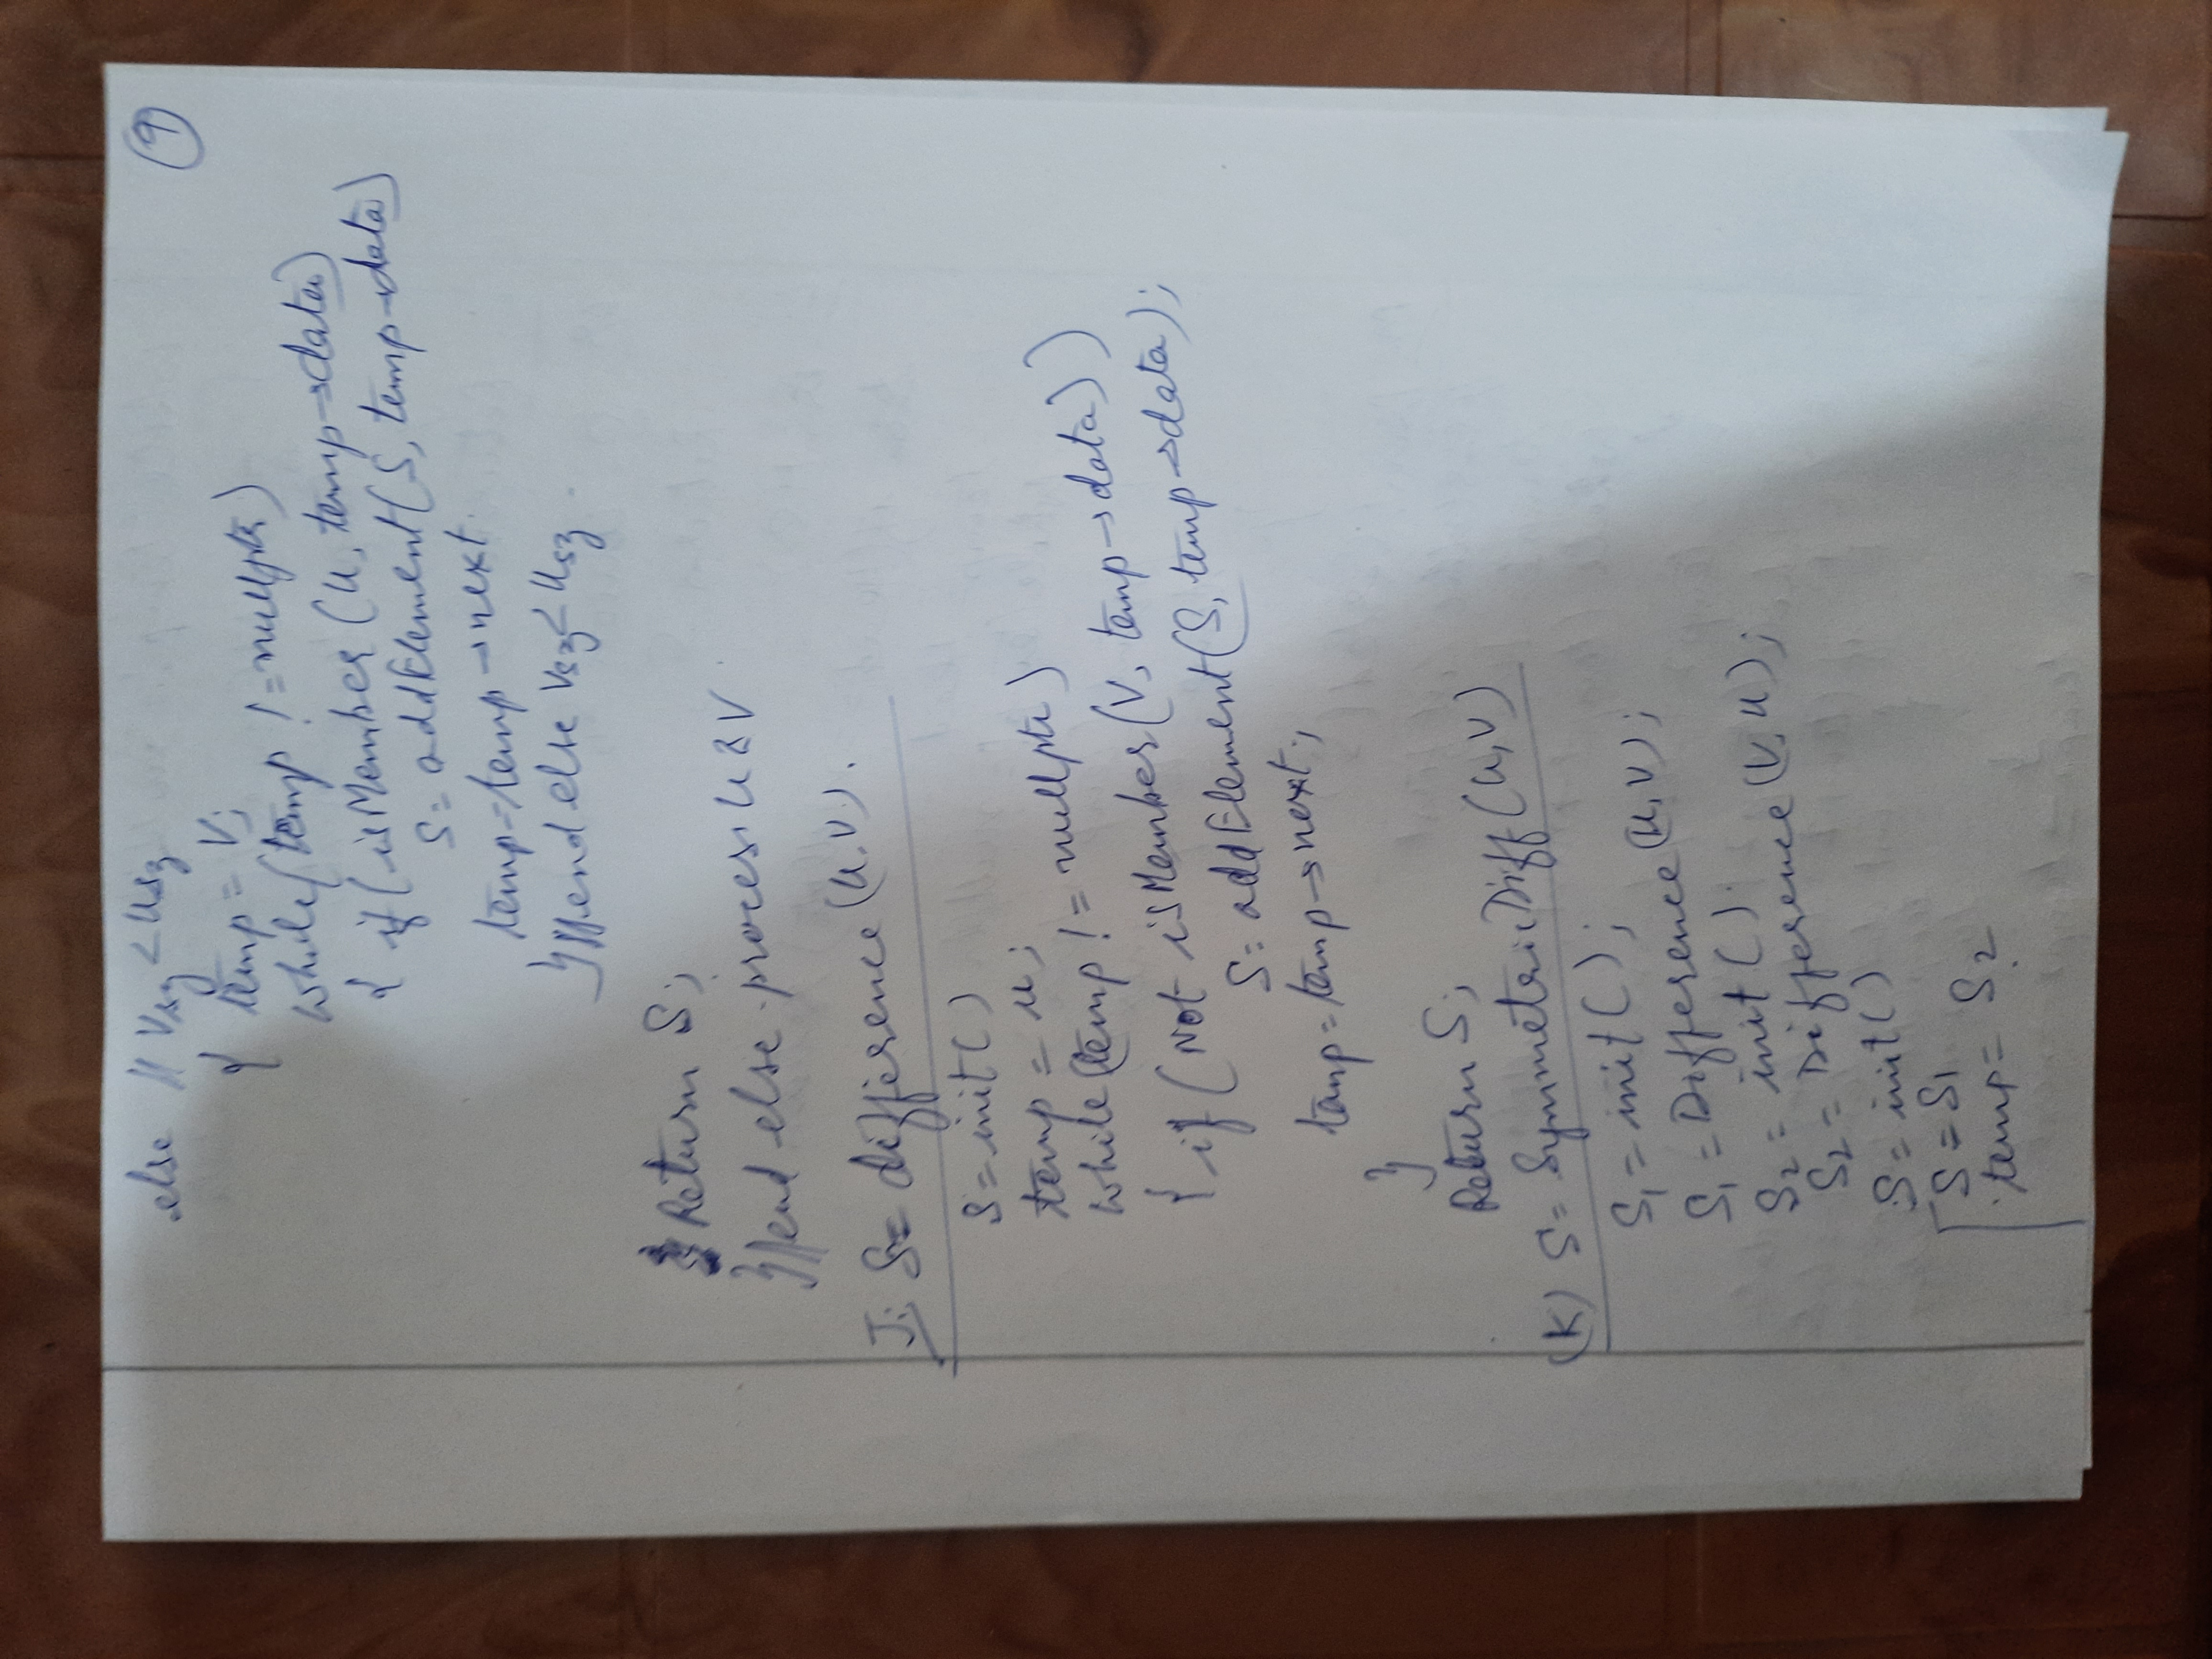 9
else // Vsz < Usz
{ temp = V;
while(temp != nullptr)
{ if(isMember(U, temp→data)
S = addElement(S, temp→data)
temp=temp→next
}//end else Vsz < Usz
Return S;
}//end else process U & V
J: S= difference(U,V).
S = init()
temp = U;
while(temp != nullptr)
{ if (Not isMember(V, temp→data))
S= addElement(S, temp→data);
temp=temp→next;
}
Return S;
(K) S= SymmetricDiff(U,V)
S1 = init();
S1 = Difference(U,V);
S2 = init()
S2 = Difference(V,U);
S = init()
S = S1
temp= S2